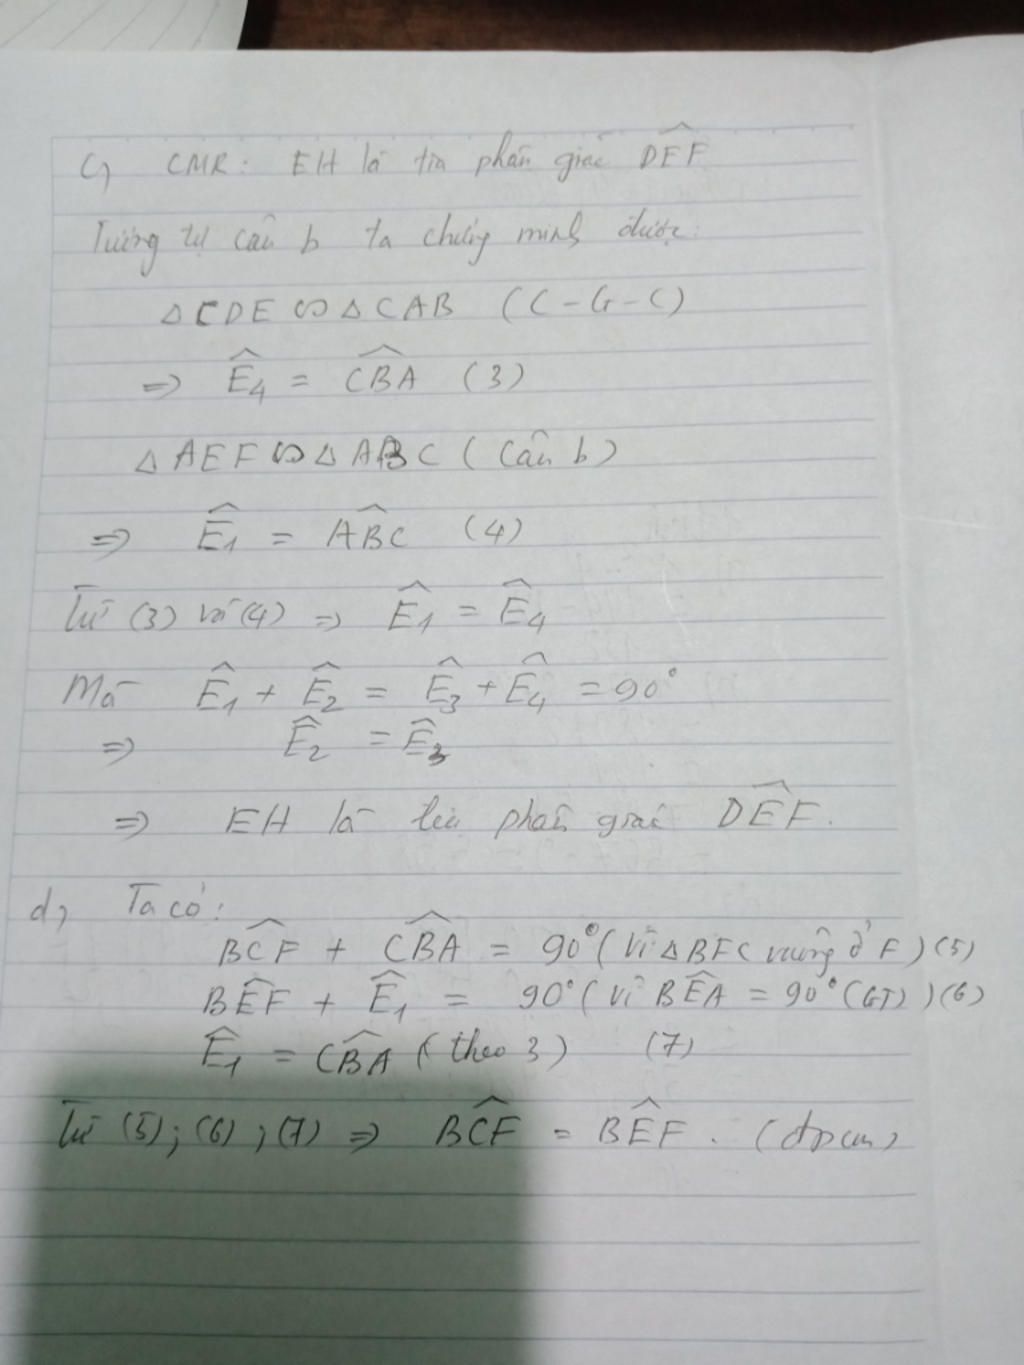 c) CMR: EH là tia phân giác DÊF
Tương tự câu b ta chứng minh được:
△CDE ∽ △CAB (C-G-C)
=> Ê4 = CB̂A (3)
△AEF ∽ △ABC (câu b)
=> Ê1 = AB̂C (4)
Từ (3) và (4) => Ê1 = Ê4
Mà Ê1 + Ê2 = Ê3 + Ê4 = 90°
=> Ê2 = Ê3
=> EH là tia phân giác DÊF.
d) Ta có:
BĈF + CB̂A = 90° (Vì △BFC vuông ở F) (5)
BÊF + Ê1 = 90° (Vì BÊA = 90° (GT)) (6)
Ê1 = CB̂A (theo 3) (7)
Từ (5); (6); (7) => BĈF = BÊF. (đpcm)